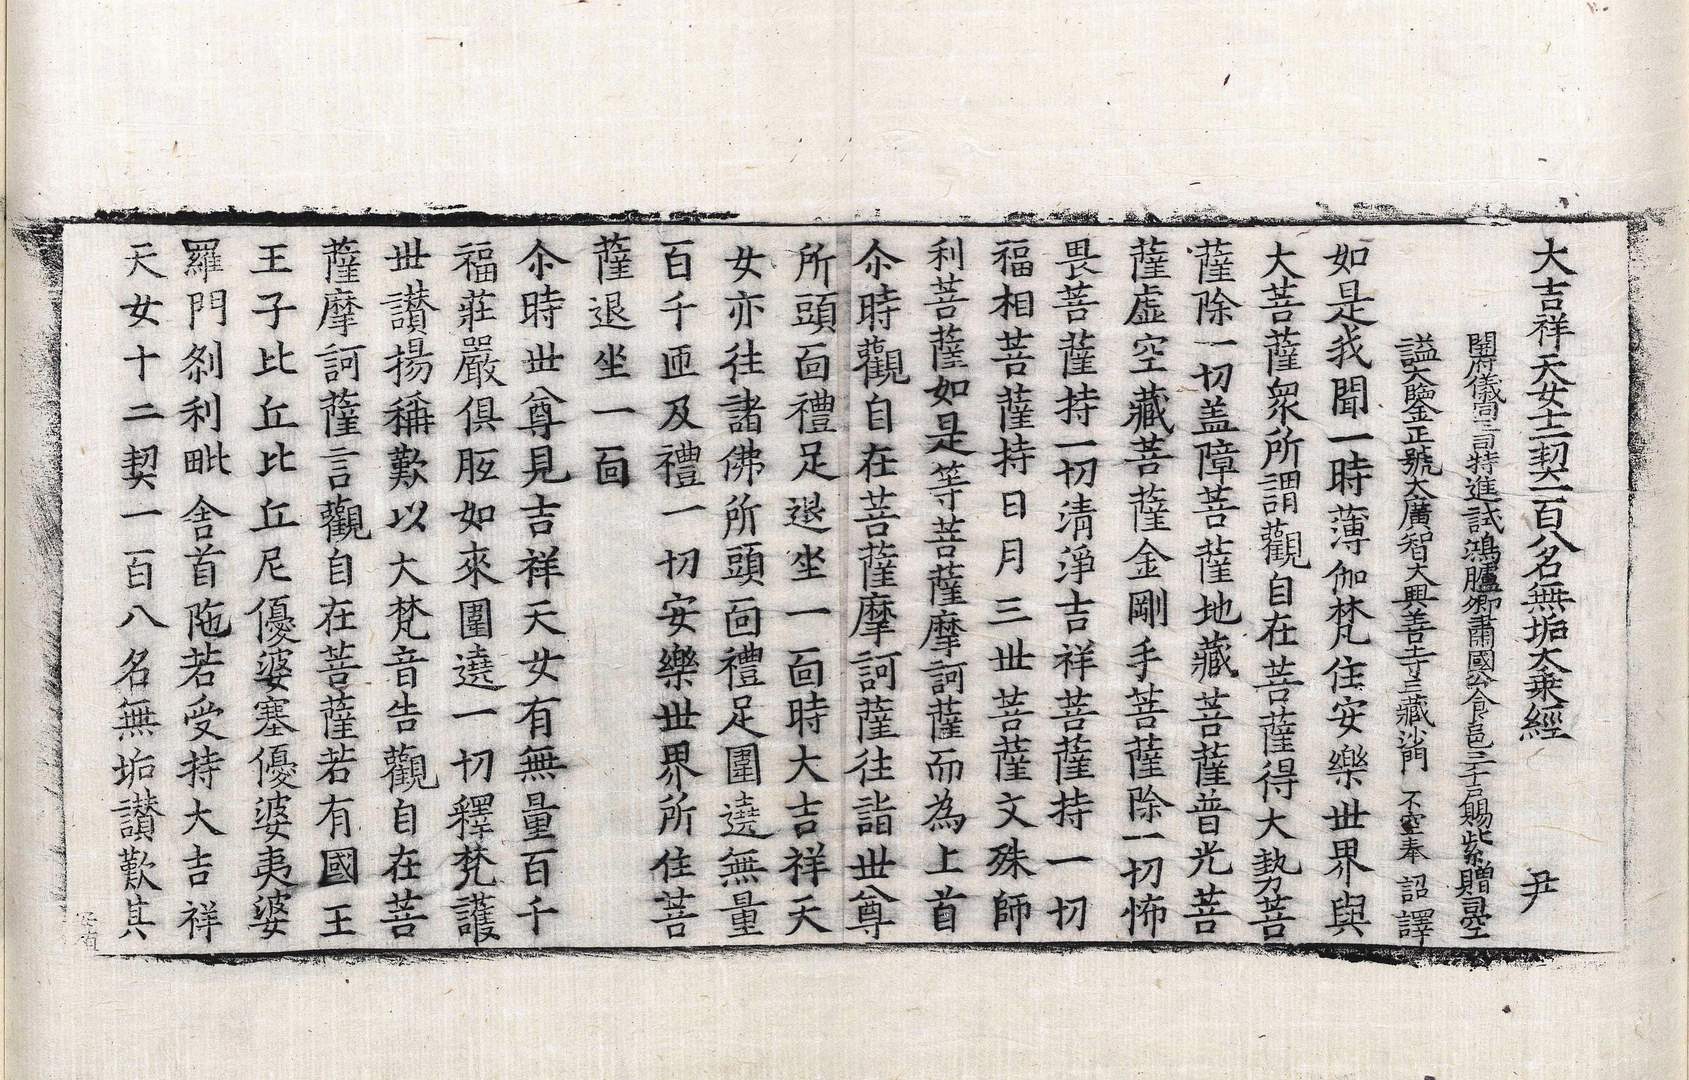 大吉祥天女十二契一百八名無垢大乗經　尹
開府儀同三司特進試鴻臚卿肅國公食邑三千戶賜紫贈司空
謚大鑒正號大廣智大興善寺三藏沙門　不空奉　詔譯
如是我聞一時薄伽梵住安樂世界與
大菩薩衆所謂觀自在菩薩得大勢菩
薩除一切盖障菩薩地藏菩薩普光菩
薩虛空藏菩薩金剛手菩薩除一切怖
畏菩薩持一切清淨吉祥菩薩持一切
福相菩薩持日月三世菩薩文殊師
利菩薩如是等菩薩摩訶薩而為上首
尒時觀自在菩薩摩訶薩往詣世尊
所頭面禮足退坐一面時大吉祥天
女亦往諸佛所頭面禮足圍遶無量
百千匝及禮一切安樂世界所住菩
薩退坐一面
尒時世尊見吉祥天女有無量百千
福莊嚴俱胝如來圍遶一切釋梵護
世讃揚稱歎以大梵音告觀自在菩
薩摩訶薩言觀自在菩薩若有國王
王子比丘比丘尼優婆塞優婆夷婆
羅門刹利毗舍首陁若受持大吉祥
天女十二契一百八名無垢讃歎其